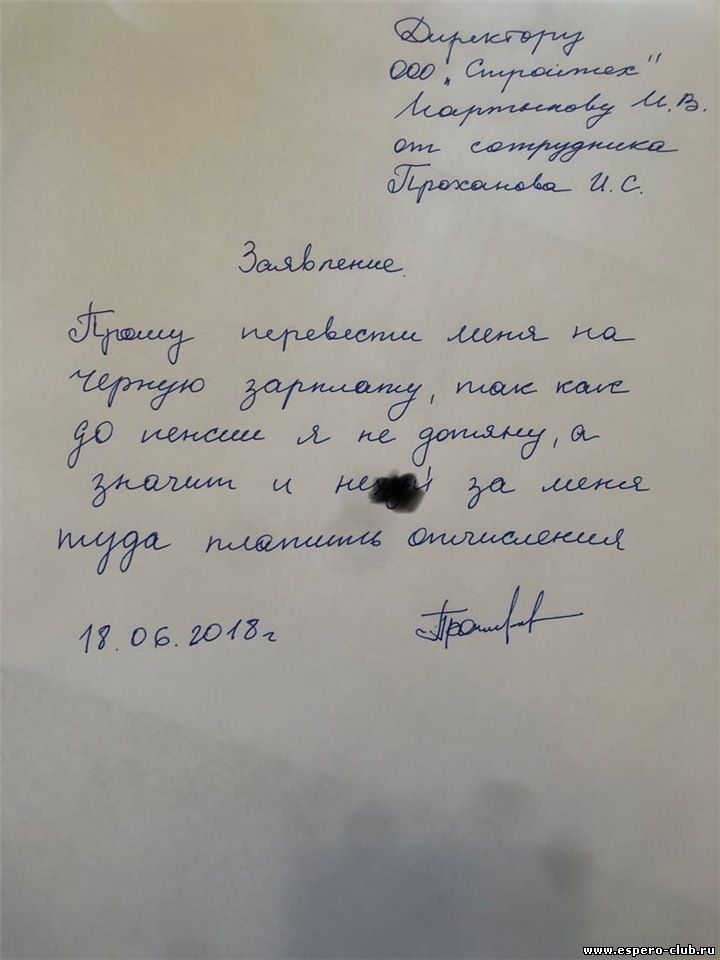 Директору
ООО „Стройтех"
Мартынову И.В.
от сотрудника
Проханова И.С.
Заявление.
Прошу перевести меня на
черную зарплату, так как
до пенсии я не дотяну, а
значит и за меня
туда платить отчисления
18.06.2018г
www.espero-club.ru